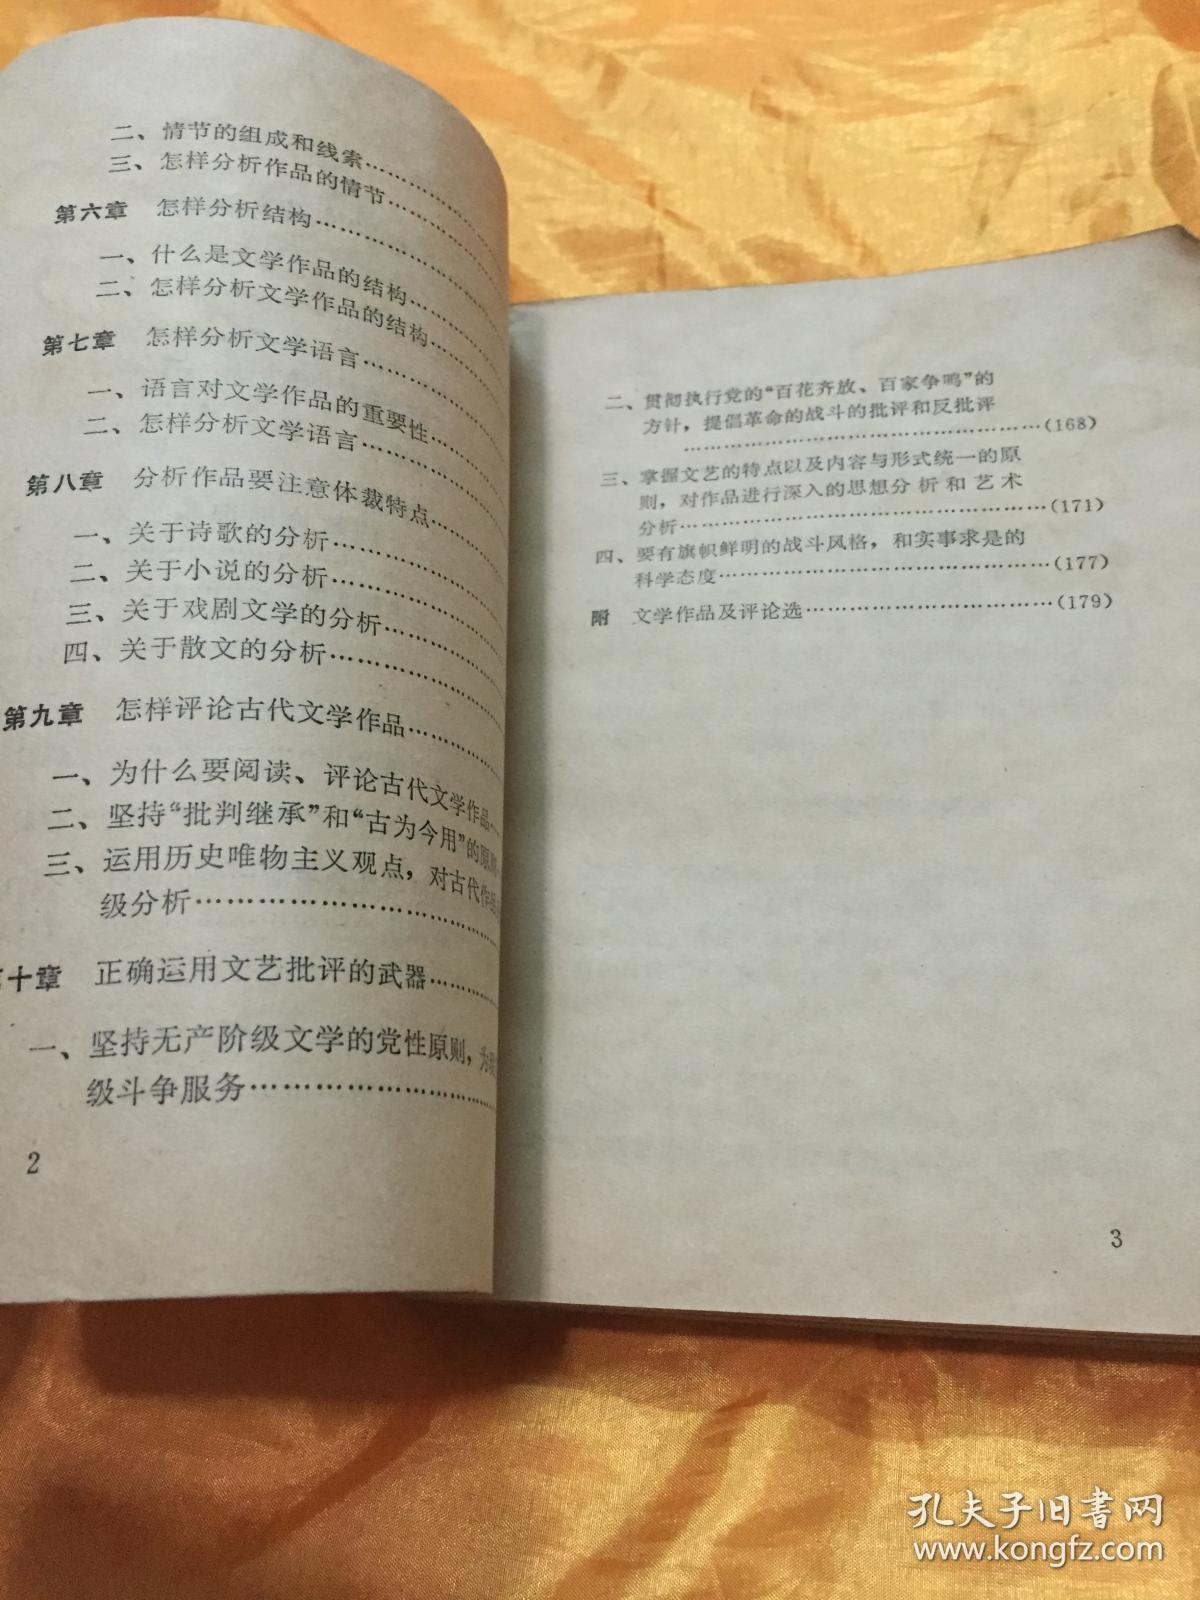 二、情节的组成和线索……………
三、怎样分析作品的情节……………
第六章 怎样分析结构……………
一、什么是文学作品的结构……………
二、怎样分析文学作品的结构……………
第七章 怎样分析文学语言……………
一、语言对文学作品的重要性……………
二、怎样分析文学语言……………
第八章 分析作品要注意体裁特点……………
一、关于诗歌的分析……………
二、关于小说的分析……………
三、关于戏剧文学的分析……………
四、关于散文的分析……………
第九章 怎样评论古代文学作品……………
一、为什么要阅读、评论古代文学作品……
二、坚持“批判继承”和“古为今用”的原则
三、运用历史唯物主义观点，对古代作品
级分析……………………
十章 正确运用文艺批评的武器……………
一、坚持无产阶级文学的党性原则，为
级斗争服务……………………
2
二、贯彻执行党的“百花齐放、百家争鸣”的
方针，提倡革命的战斗的批评和反批评
……………………………………(168)
三、掌握文艺的特点以及内容与形式统一的原
则，对作品进行深入的思想分析和艺术
分析……………………………………(171)
四、要有旗帜鲜明的战斗风格，和实事求是的
科学态度……………………………………(177)
附 文学作品及评论选……………………………(179)
3
孔夫子旧書网
www.kongfz.com